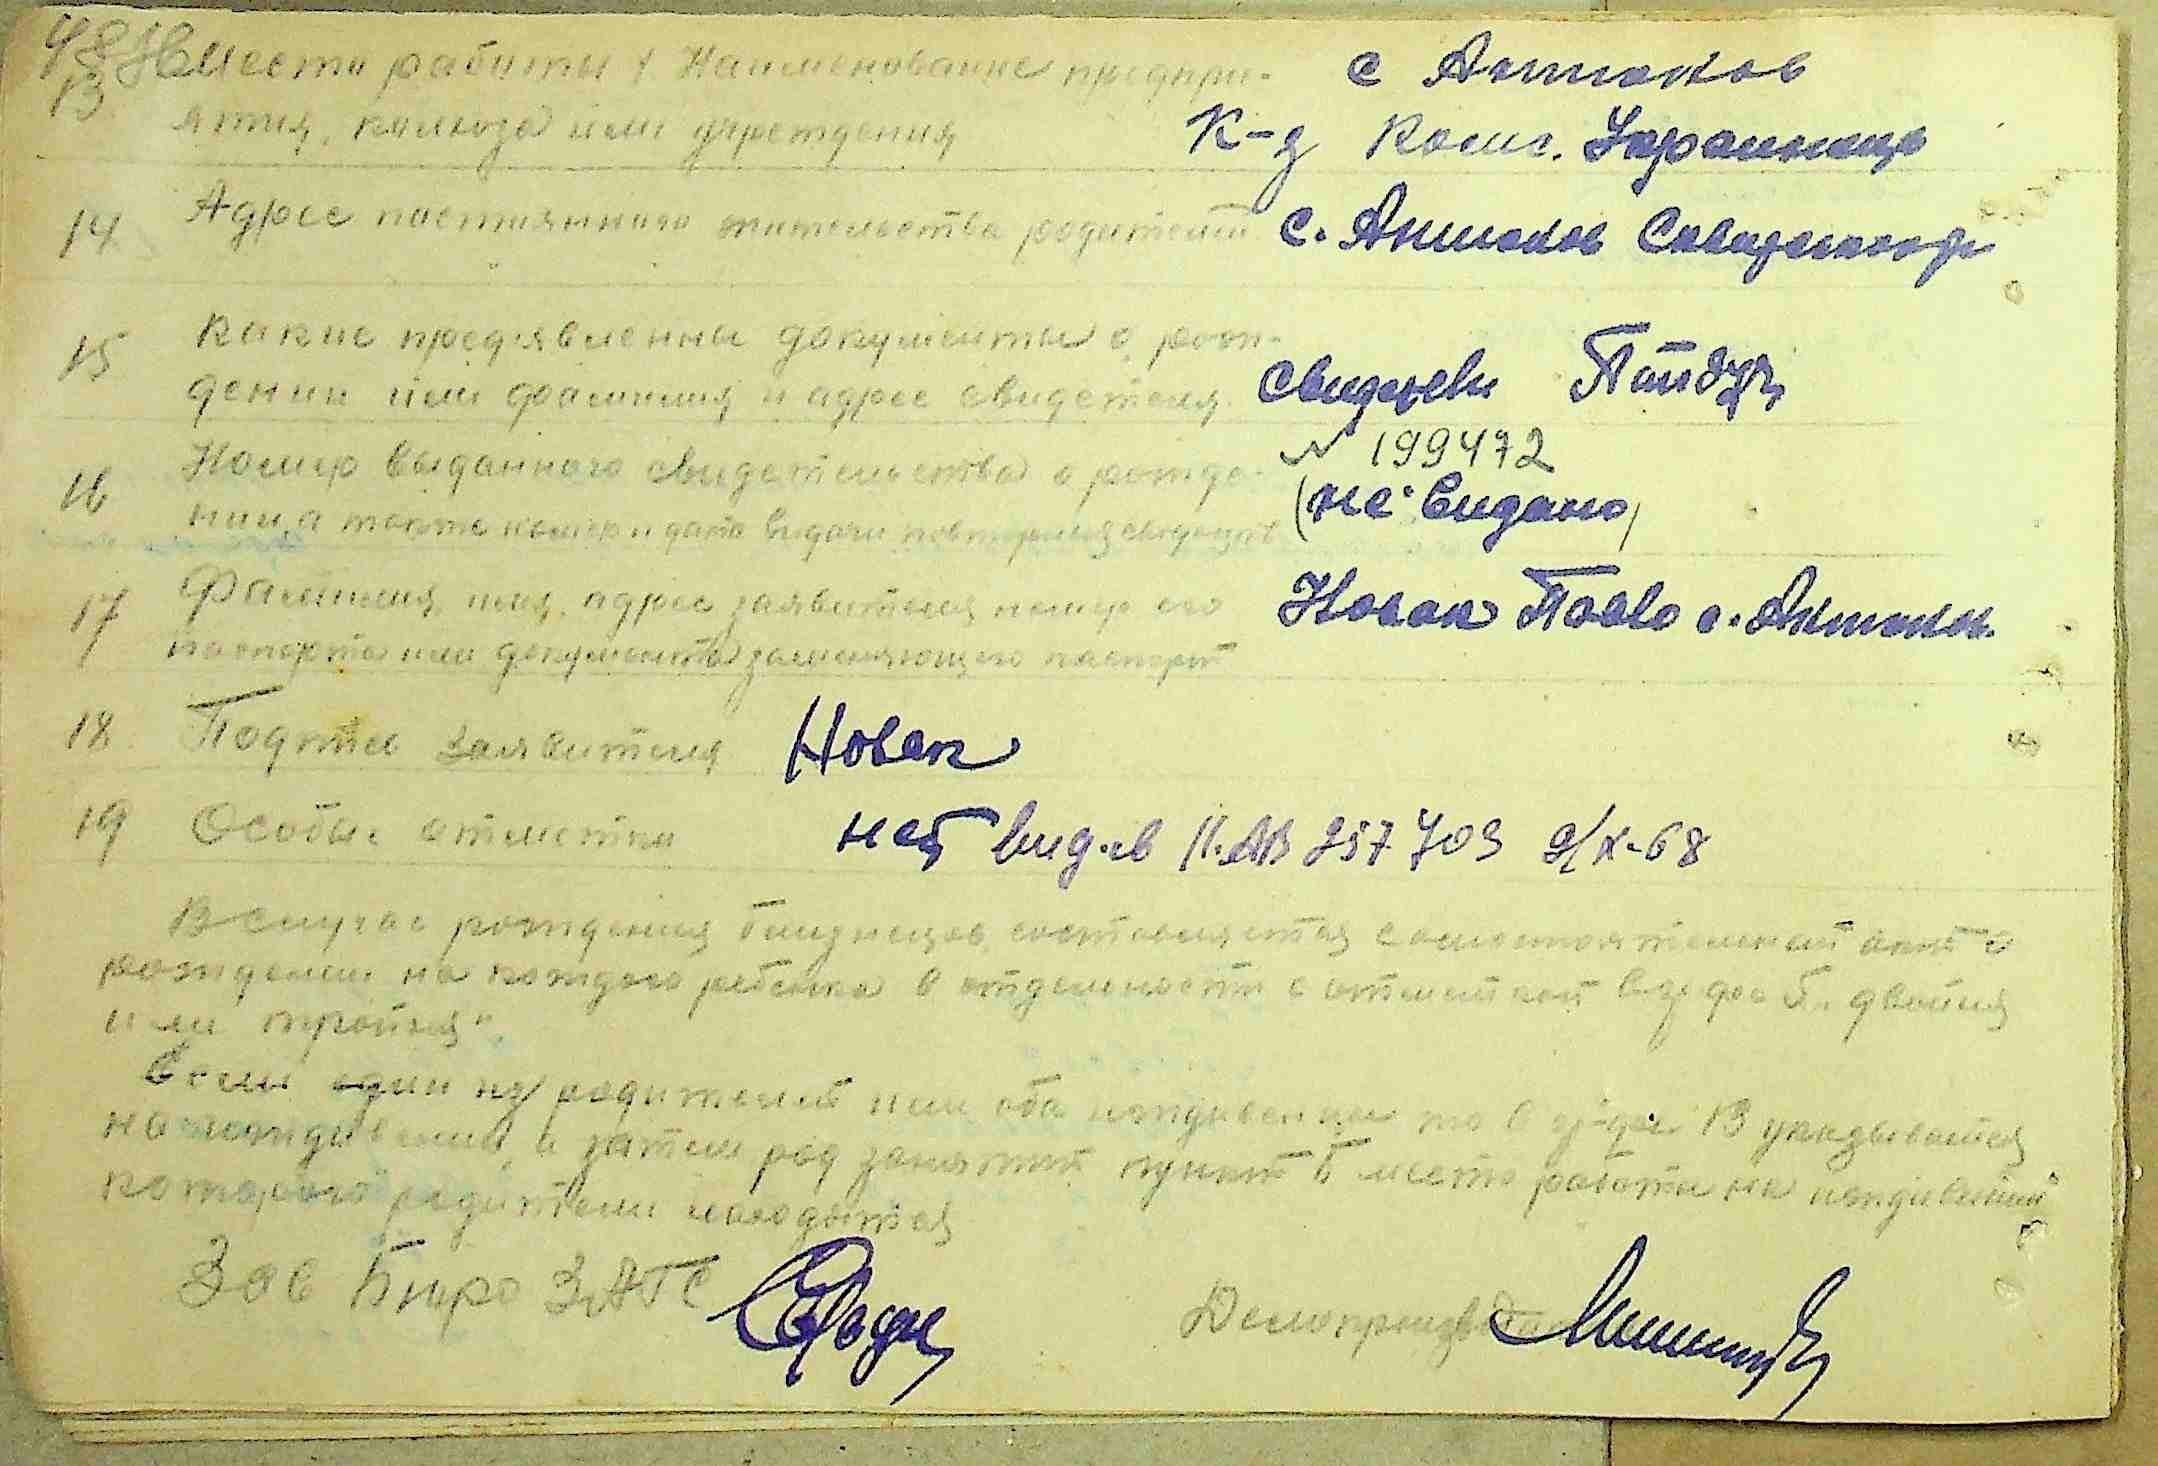 48 Место работы Наименование предпри- с Антонов
13 ятия, колхоза или учреждения К-д Комс. Украинец
14 Адрес постоянного жительства родителей с. Антонов Сквирського р
15 Какие предявлены документы о рож-
дении или фамилия и адрес свидетеля свидетели
16 Номер выданного свидетельства о рожде- № 199472
нии, а также номер и дата выдачи повторных свидетельств (не видано)
17 Фамилия, имя, адрес заявителя номер его Новак Павло с. Антонов
паспорта или документа заменяющего паспорт
18 Подпись заявителя Новак
19 Особые отметки нет вид. св II. АВ 257703 2/X-68
В случае рождения близнецов, составляется самостоятельный акт о
рождении на каждого ребенка в отдельности с отметкой в графе 5 "двойня
или тройня".
Если один из родителей или оба иждивенцы то в графе 13 указывается
на иждивении, а затем род занятий пункт б место работы на иждивении
которого родители находятся
Зав Бюро ЗАГС Делопроизводитель